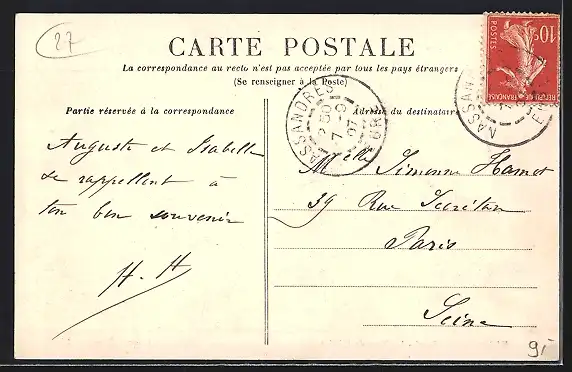 27
CARTE POSTALE
La correspondance au recto n'est pas acceptée par tous les pays étrangers
(Se renseigner à la Poste)
Partie réservée à la correspondance
Adresse du destinataire
Auguste et Isabelle
se rappellent à
ton bon souvenir
H. H
Melle Simonne Hamot
39 Rue Secrétan
Paris
Seine
NASSANDRES
7 -9
07
EURE
10c
POSTES
REPUBLIQUE FRANÇAISE
NASSAND
9f